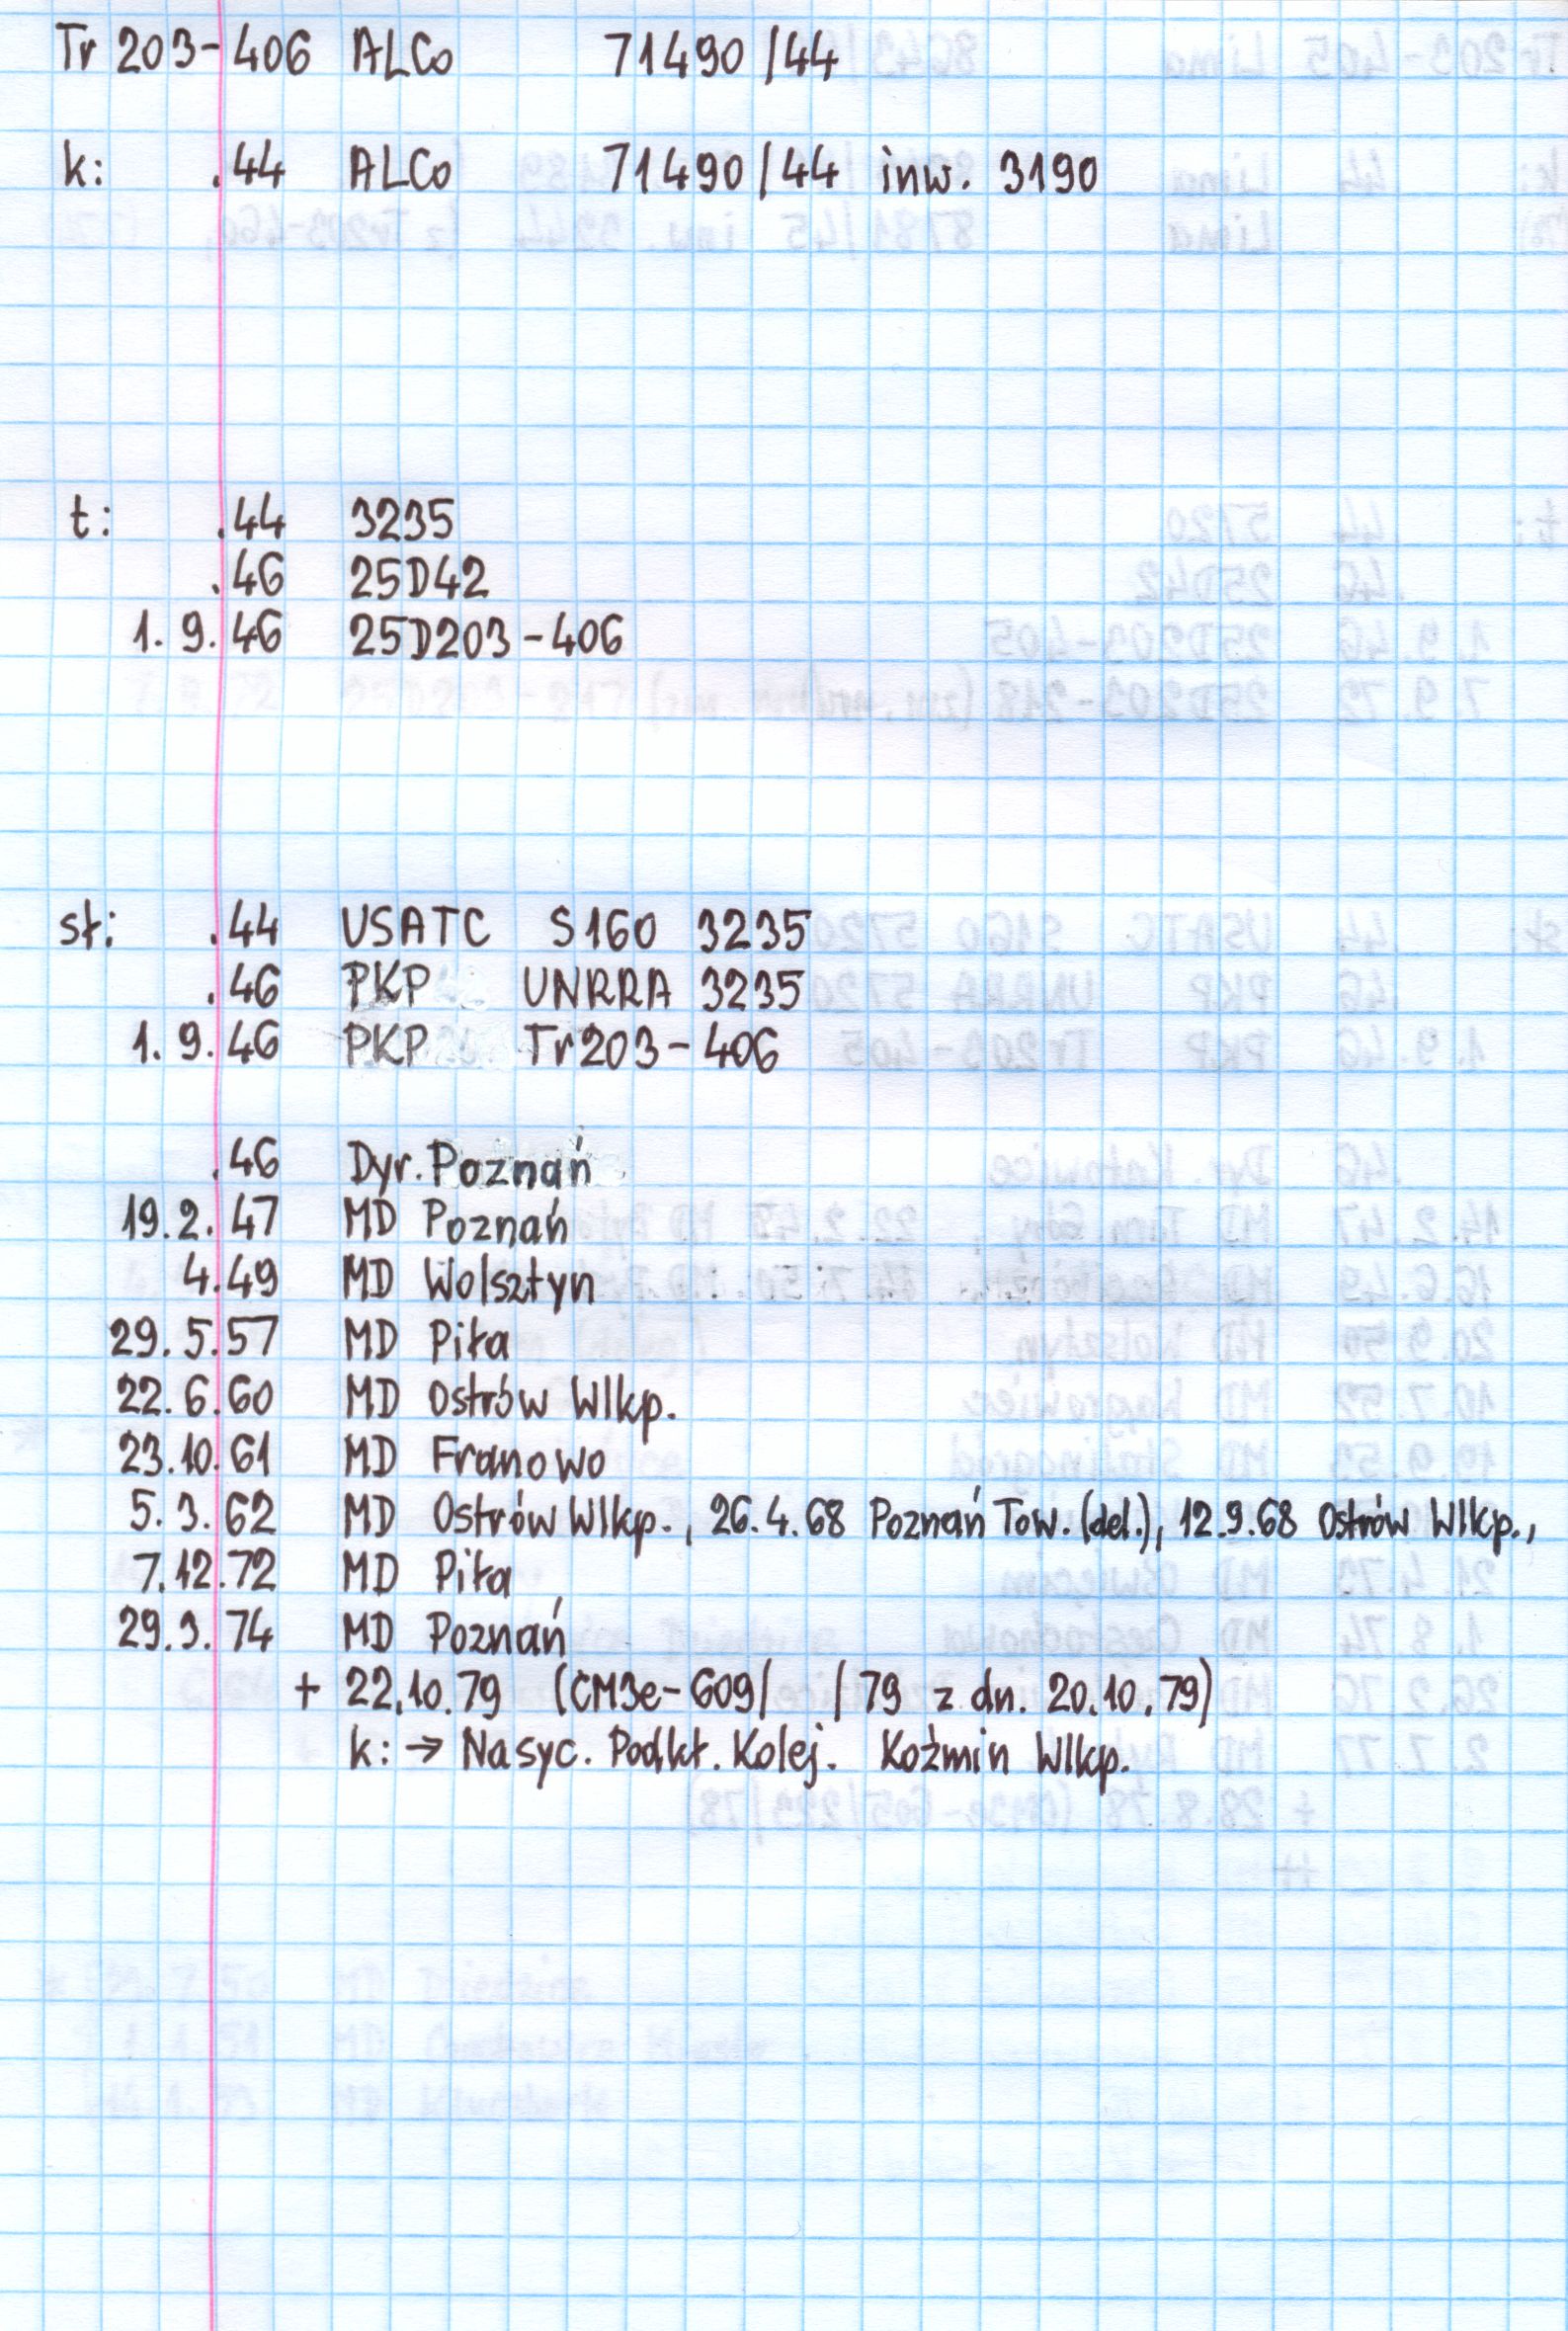 Tr 203-406 ALCo 71490/44
k: .44 ALCo 71490/44 inw. 3190
t: .44 3235
.46 25D42
1.9.46 25D203-406
sł: .44 USATC S160 3235
.46 PKP UNRRA 3235
1.9.46 PKP Tr203-406
.46 Dyr. Poznań
19.2.47 MD Poznań
4.49 MD Wolsztyn
29.5.57 MD Piła
22.6.60 MD Ostrów Wlkp.
23.10.61 MD Franowo
5.3.62 MD Ostrów Wlkp., 26.4.68 Poznań Tow. (del.), 12.9.68 Ostrów Wlkp.,
7.12.72 MD Piła
29.3.74 MD Poznań
+ 22.10.79 (CM3e-609/ /79 z dn. 20.10.79)
k: → Nasyc. Podkł. Kolej. Koźmin Wlkp.